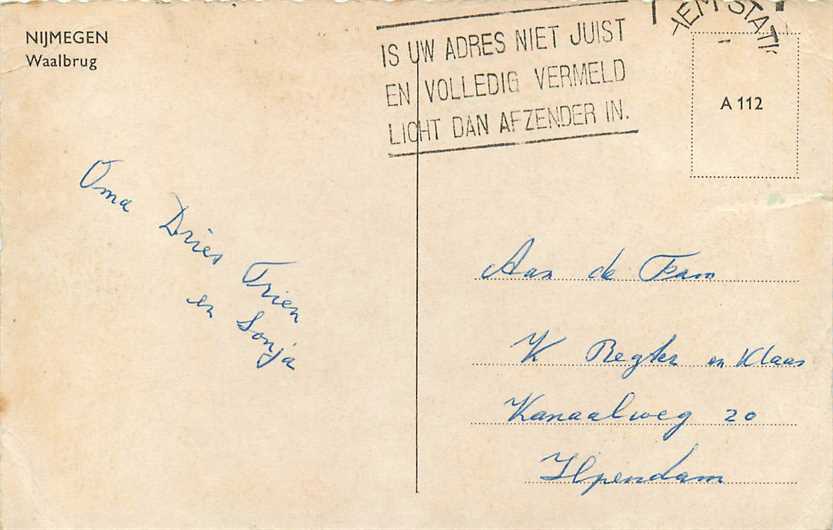 NIJMEGEN
Waalbrug
IS UW ADRES NIET JUIST
EN VOLLEDIG VERMELD
LICHT DAN AFZENDER IN.
A 112
Oma Dries Trien
en Sonja
Aan de Fam
K Regter en Klaas
Kanaalweg 20
Ilpendam